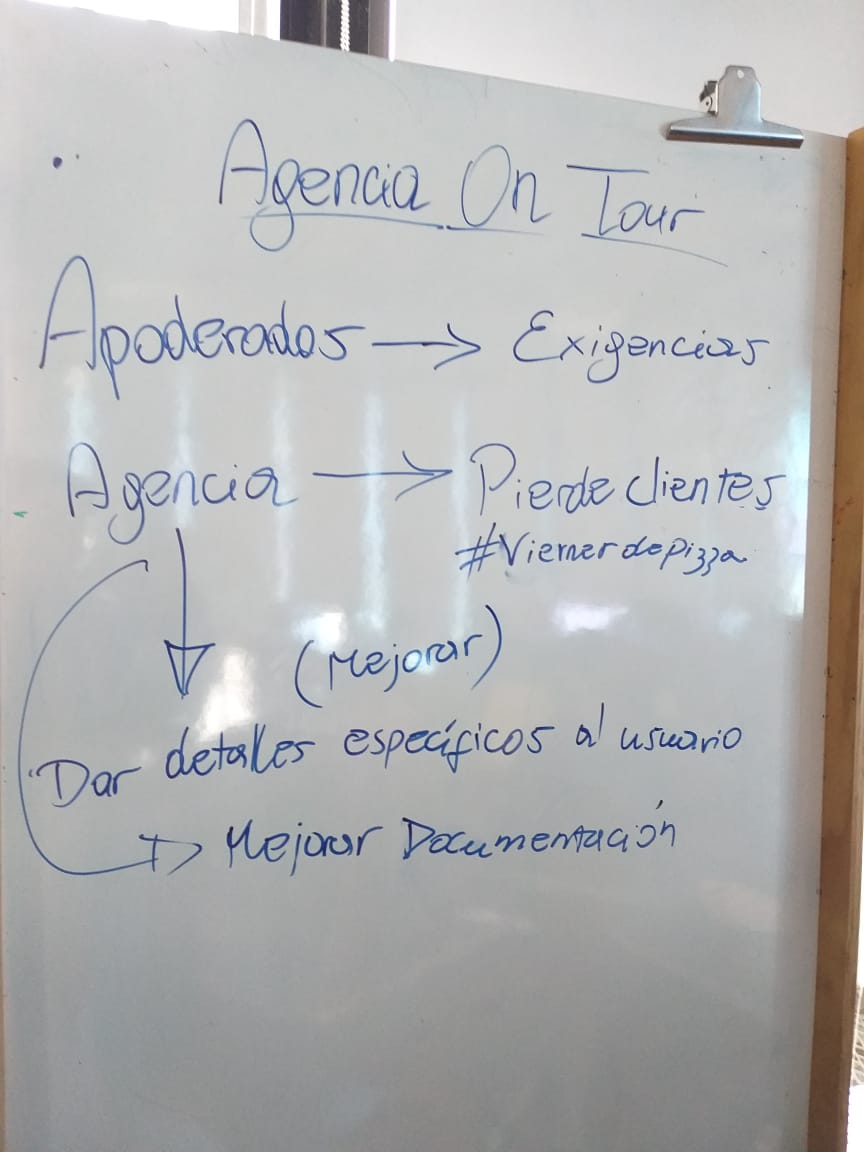 Agencia On Tour
Apoderados → Exigencias
Agencia → Pierde clientes
#Viernes de pizza
(Mejorar)
Dar detalles específicos al usuario
Mejorar Documentación